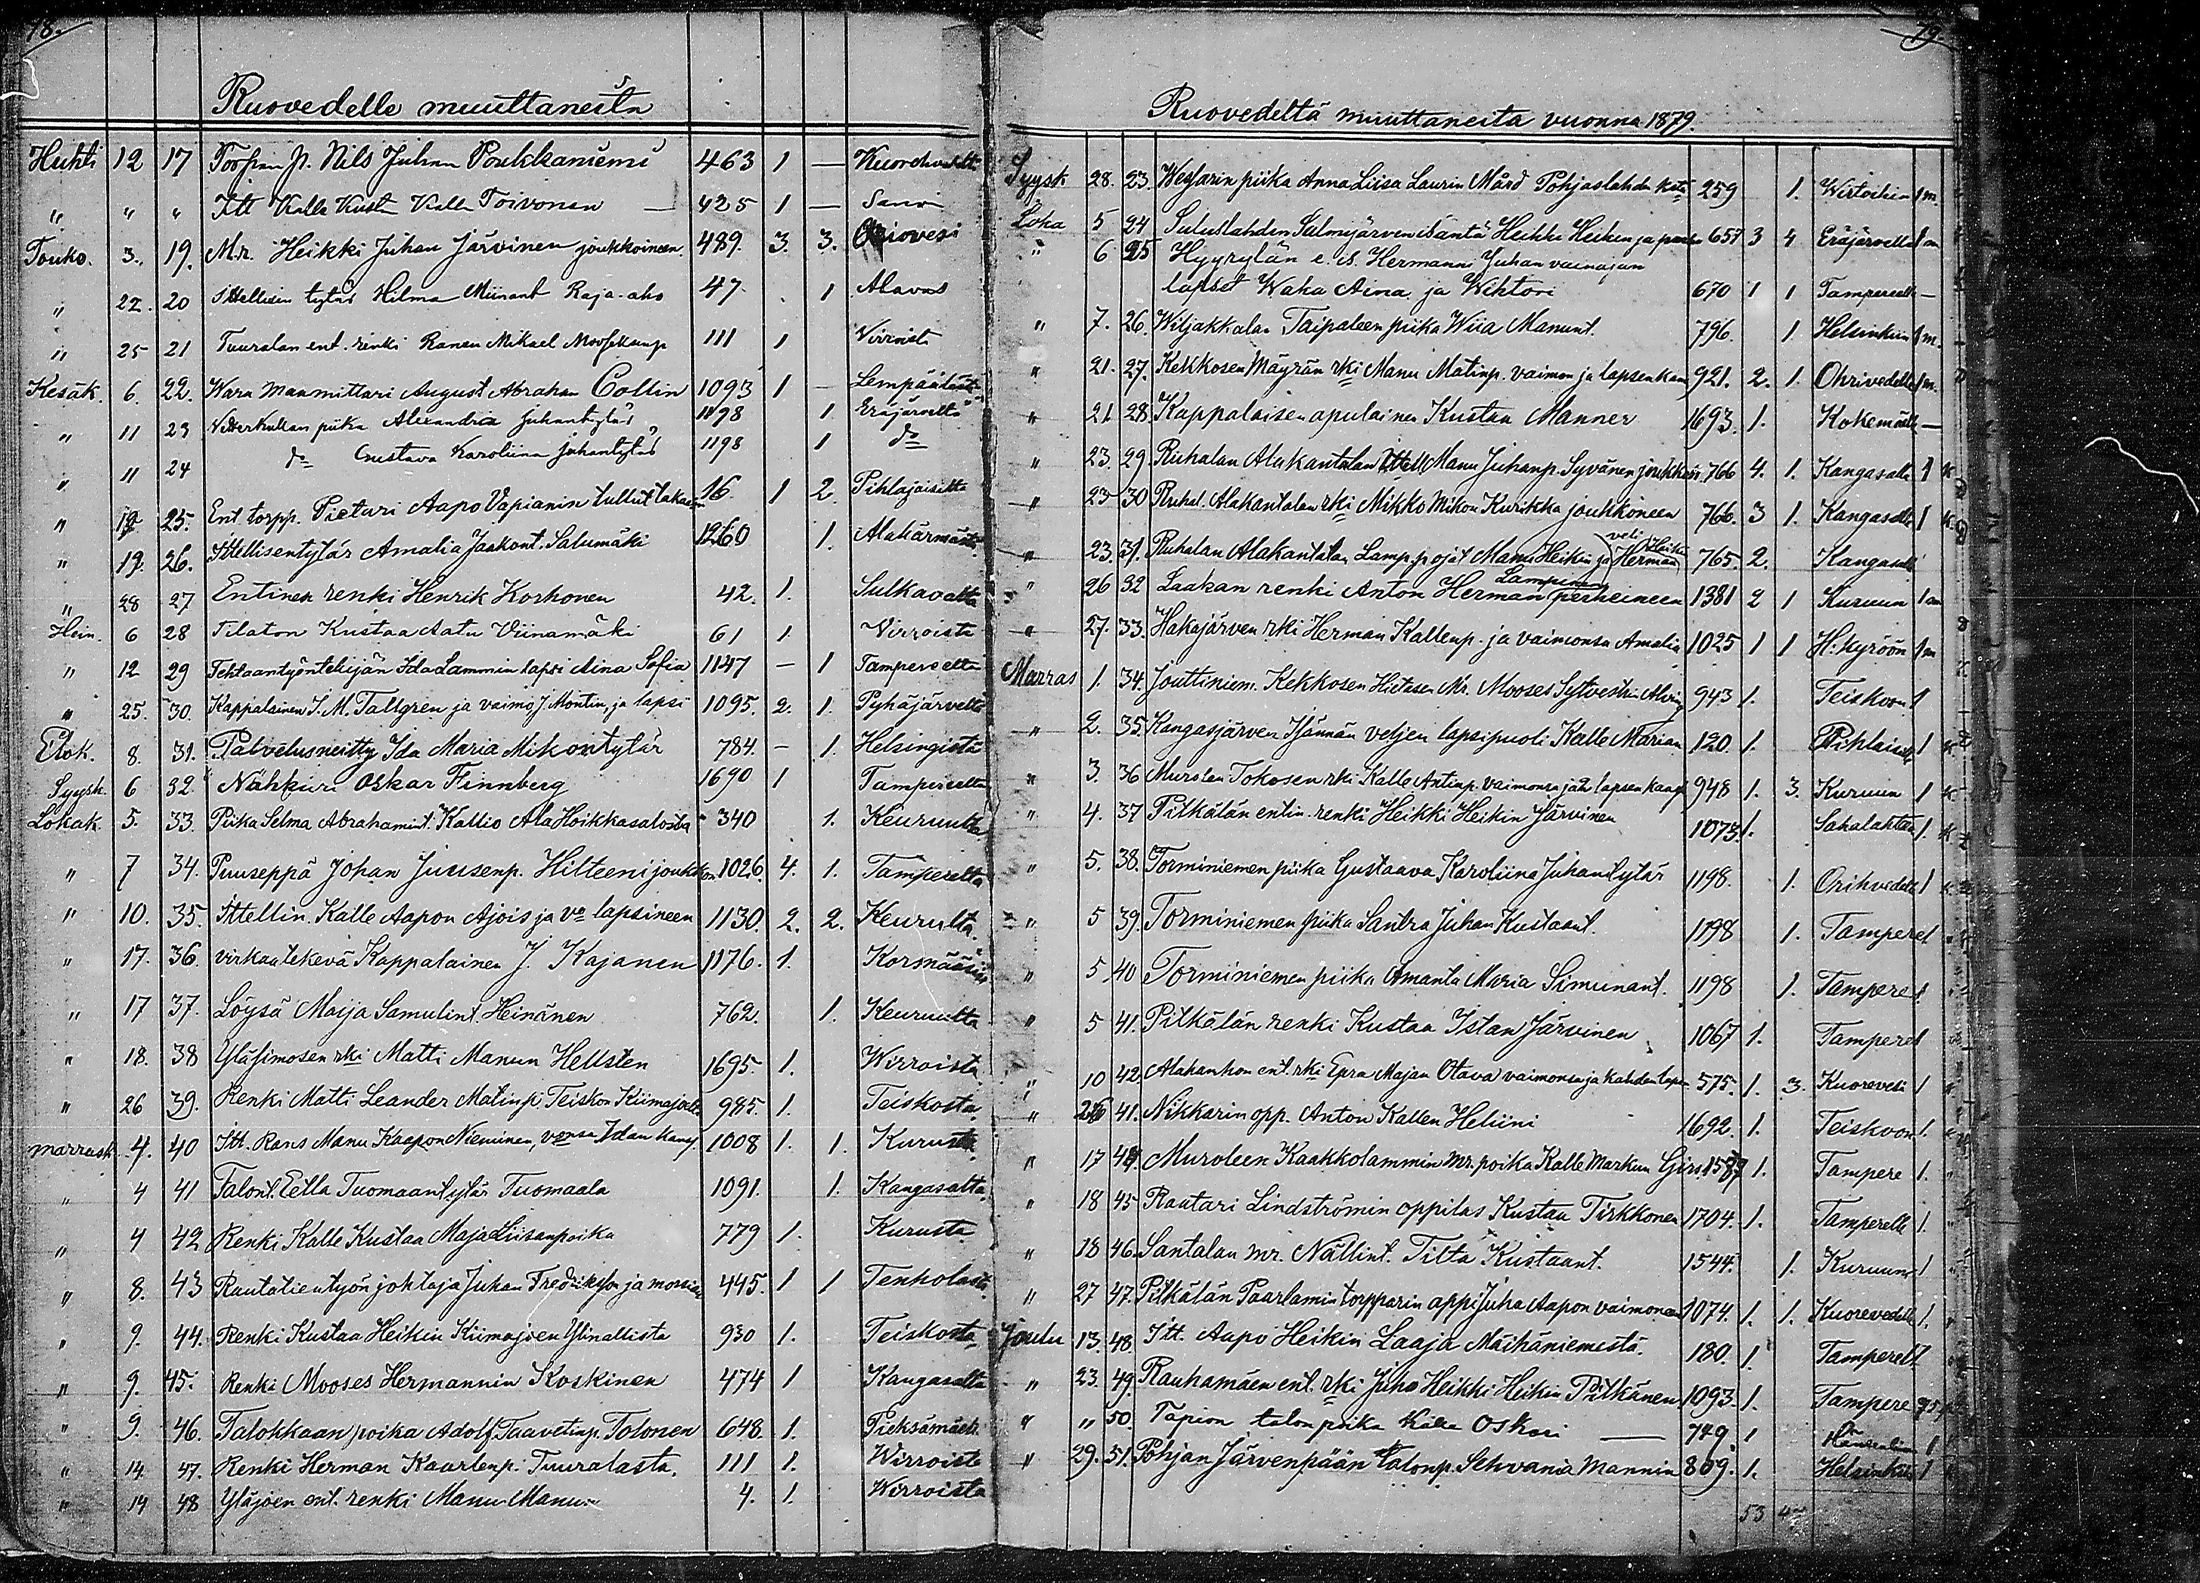 78.
Ruovedelle muuttaneita
Huhti 12 17 Nils Juhan Poukkaniemi 463 1 —
" " " Itt Kalle Kusta Kalle Toivonen — 425 1 —
Touko. 3. 19. M.r. Heikki Juhan Järvinen joukkoineen. 489. 3. 3.
" 22. 20 Ittellisen tytär Hilma Miinant Raja-aho 47. 1 Alavus
" 25 21 Tuuralan ent. renki Mikael 111 1
Kesäk. 6. 22. Wara Maanmittari August Abraham Collin 1093 1 — Lempäälästä
" 11 23 piika Alexandra Juhantytär 1198 1 Eräjärveltä
" 11 24 do Gustava Karoliina Juhantytär 1198 1 do
" 12 25. Ent. torpp. Pieturi Aapo Vapianin tullut takasin 16. 1 2 Pihlajaisista
" 19. 26. Ittellisentytär Amalia Jaakont. Salumäki 1260 1. Alakärmästä
" 28 27 Entinen renki Henrik Korhonen 42. 1. Sulkavalta
Hein. 6 28 Tilaton Kustaa Aatu Viinamäki 61 1. Virroista
" 12 29 Tehtaantyöntekijän Ida Lammin lapsi Aina Sofia 1147 — 1 Tampereelta
" 25. 30. Kappalainen J. M. Tallgren ja vaimo J. Montin, ja lapsi 1095. 2. 1. Pyhäjärveltä
Elok. 8. 31. Palvelusneitty Ida Maria Mikontytär 784. — 1. Helsingistä
Syysk. 6 32. Nahkuri Oskar Finnberg 1690 1 Tampereelta
Lokak. 5. 33. Piika Selma Abrahamint. Kallio Ala Hoikkasalosta 340 1. Keuruulta
" 7 34. Puuseppä Johan Juusenp. Hilteeni joukkon 1026. 4. 1. Tampereelta
" 10. 35. Ittellin. Kalle Aapon Ajois ja vo lapsineen 1130. 2. 2. Keurulta.
" 17. 36. virkaatekevä Kappalainen J. Kajanen 1176. 1.
" 17 37. Löysä Maija Samulint. Heinänen 762. 1. Keuruulta
" 18. 38 Yläsimosen rki Matti Manun Hellsten 1695. 1. Wirroista
" 26 39. Renki Matti Leander Matinp. Teiskon Kiimajoelta 985. 1. Teiskosta
Marrask. 4. 40 Itt. Rans Manu Kaapon Nieminen, vonsa Idan kansa 1008 1. 1. Kurusta
" 4 41 Talont. Eetla Tuomaantytär Tuomaala 1091. 1. Kangasalta
" 4 42 Renki Kalle Kustaa Maja Liisanpoika 779 1. Kurusta
" 8. 43 Rautatientyön johtaja Juhan Fredriksson ja morsian 445. 1 1 Tenholasta
" 9. 44. Renki Kustaa Heikin Kiimajoen Ylinallista 930 1. Teiskosta
" 9. 45. Renki Mooses Hermannin Koskinen 474 1 Kangasalta
" 9. 46. Talokkaan poika Adolf Taavetinp. Tolonen 648. 1. Pieksämäeltä
" 14. 47. Renki Herman Kaarlenp. Tuuralasta. 111 1. Wirroista
" 14 48 Yläjoen ent. renki Manu Manun 4. 1. Wirroista
79.
Ruovedeltä muuttaneita vuonna 1879.
Syysk 28. 23. piika Anna Liisa Laurin Mård Pohjaslahden 259 1. 1 m.
Loka 5 24 Salmijärven isäntä Heikki Heikin ja 657 3 4 Eräjärvelle
" 6 25 Hyyrylän e. is. Hermanni Juhan vainajan
lapset Waka Aina ja Wihtori 670 1 1 Tampereelle —
" 7. 26. Wiljakkalan Taipaleen piika Wiia Manunt. 796. 1 Helsinkiin 1 m.
" 21. 27. Kekkosen Mäyrän rki Manu Matinp. vaimon ja lapsen kan 921. 2. 1. Ohrivedelle 1 m.
" 21 28. Kappalaisen apulainen Kustaa Manner 1693. 1. Kokemäelle —
" 23. 29. Ruhalan Alakantalan Ittell. Manu Juhanp. Syvänen joukkoin 766 4. 1. Kangasalle 1 k
" 23 30 Ruhal. Alakantalan rki Mikko Mikon Kurikka joukkoneen 766. 3 1. Kangasalle 1 k
" 23. 31. Ruhalan Alakantalan Lamp. pojat Manu Heikin ja veli Herman Heikin 765. 2. Kangasalle
" 26 32 Laakan renki Anton Herman Lampinen perheineen 1381 2 1 Kuruun 1
" 27. 33. Hakajärven rki Herman Kallenp. ja vaimonsa Amalia 1025 1 1 H. kyröön 1 m
Marras 1. 34. Jouttiniem. Kekkosen Hietasen Mr. Mooses Sylvesteri 943 1. Teiskoon 1
" 2. 35. Kangasjärven Isännän veljen lapsipuoli Kalle Marian 120. 1. 1 k
" 3. 36 Murolen Tokosen rki Kalle Antinp. vaimonsa ja 2 lapsen kans 948 1. 3. Kuruun 1 k
" 4. 37 Pitkälän entin. renki Heikki Heikin Järvinen 1073. 1. Sahalahtee 1. k
" 5. 38. Torminiemen piika Gustaava Karoliina Juhantytär 1198. 1. Orihvedelle 1 k
" 5 39. Torminiemen piika Santra Juhan Kustaant. 1198 1. Tampere 1
" 5. 40 Torminiemen piika Amanta Maria Simunant. 1198 1. Tampere 1
" 5 41. Pitkälän renki Kustaa Istan Järvinen 1067 1. Tampere 1
" 10 42 Alahanhon ent. rki Epra Majan Otava vaimonsa ja kahden lapsen 575. 1. 3. Kuorevesi 1
" 26 41. Nikkarin opp. Anton Kallen Heliini 1692. 1. Teiskoon 1.
" 17 44 Muroleen Kaakkolammin Mr. poika Kalle Markun 1587 1. Tampere 1
" 18 45 Raatari Lindströmin oppilas Kustaa Tirkkonen 1704. 1. Tamperelle 1.
" 18 46. Santalan mr. Nallint. Tilta Kustaant. 1544. 1. Kuruun 1
" 27 47. Pitkälän Paarlamin torpparin appi Juha Aapon vaimonensa 1074. 1. 1. Kuorevedelle 1.
Joulu 13. 48. Itt. Aapo Heikin Laaja Mäihäniemestä. 180. 1. Tamperelle
" 23. 49. Rauhamäen ent. rki Juho Heikki Heikin Pitkänen 1093. 1. Tampere
" " 50. Tapion talon poika Kalle Oskari — 749. 1 1
" 29. 51. Pohjan Järvenpään talonp. Sehvania Mannin 809. 1. Helsinkiin 1
53